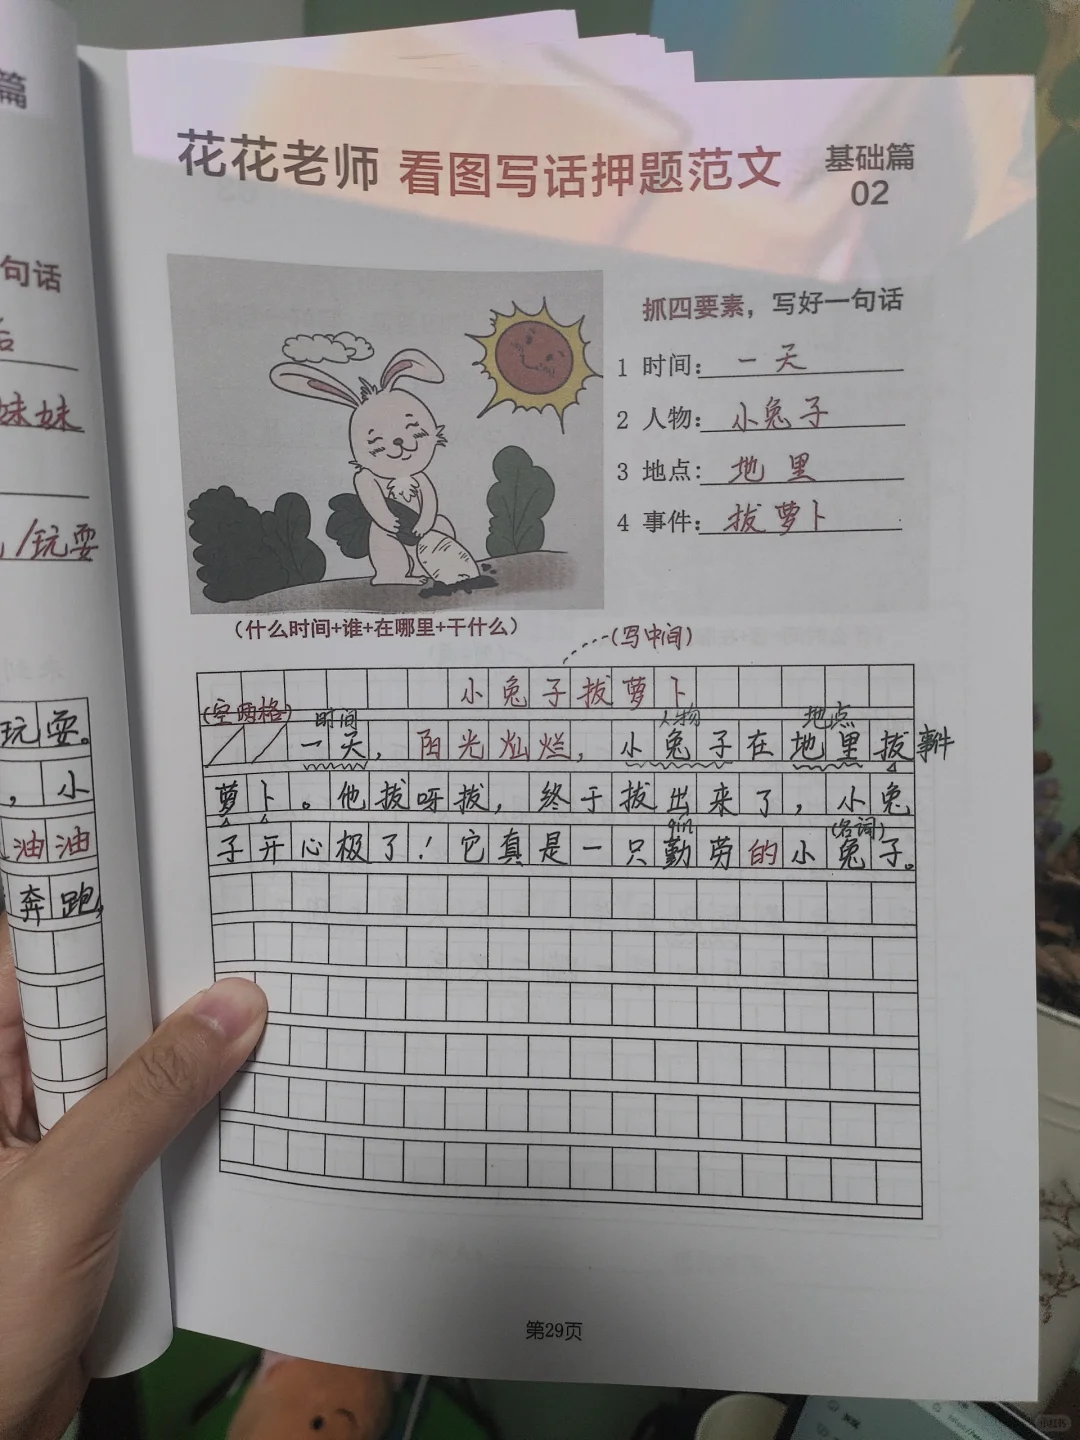 篇
句话
妹妹
/玩耍
玩耍。
，小
油油
奔跑，
花花老师 看图写话押题范文 基础篇 02
抓四要素，写好一句话
1 时间：一天
2 人物：小兔子
3 地点：地里
4 事件：拔萝卜
（什么时间+谁+在哪里+干什么）
(写中间)
小兔子拔萝卜
(空两格) 时间 人物 地点
一天，阳光灿烂，小兔子在地里拔 事件
萝卜。他拔呀拔，终于拔出来了，小兔
qín (名词)
子开心极了！它真是一只勤劳的小兔子。
第29页
小红书